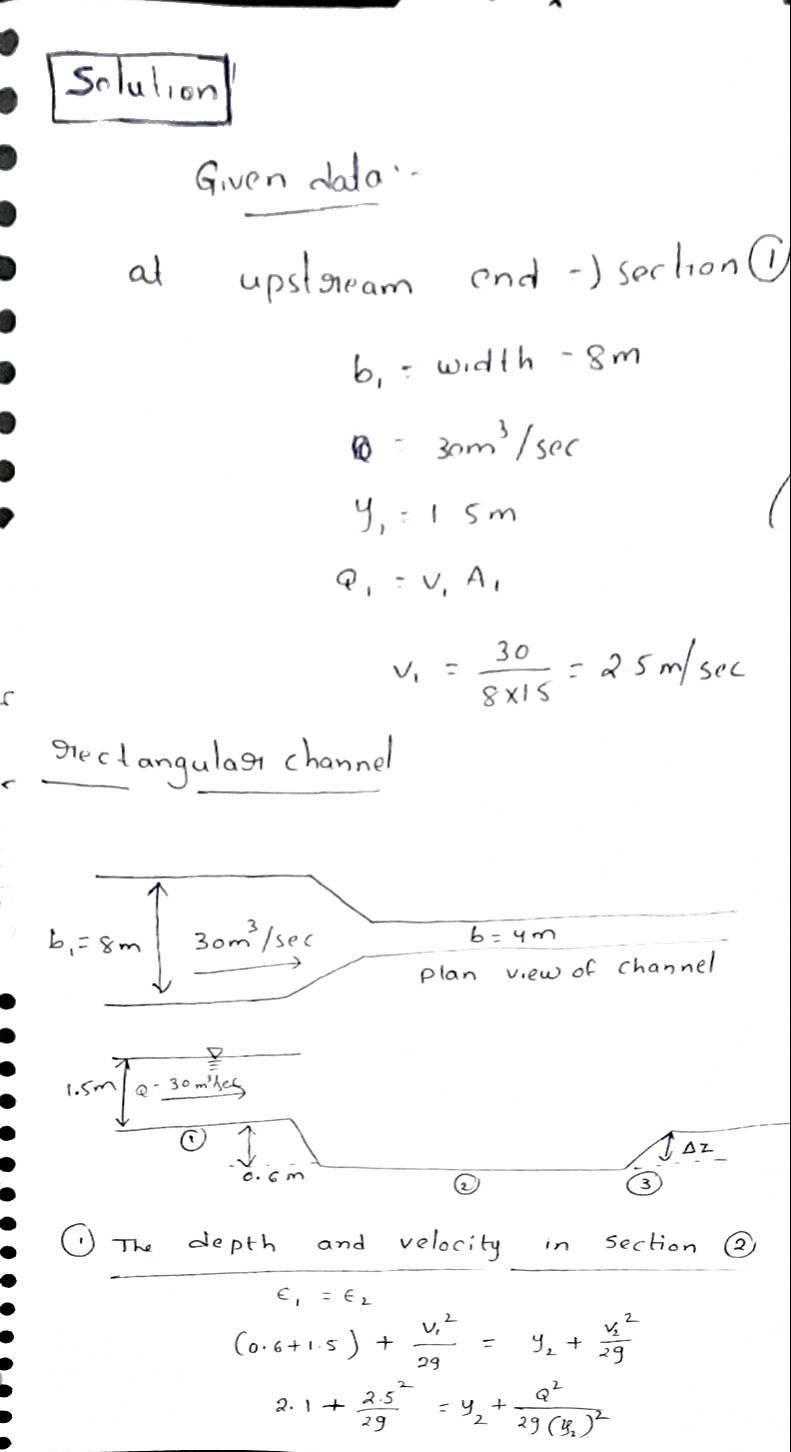 Solution
Given data :-
at upstream end -) section ①
b₁ = width - 8m
Q = 30m³/sec
y₁ = 1 5m
Q₁ = V₁ A₁
V₁ = 30/8×15 = 25 m/sec
rectangular channel
b₁ = 8m 30m³/sec b = 4m
plan view of channel
1.5m Q - 30m³/sec
① 0.6m ② ③ ΔZ
① The depth and velocity in section ②
ε₁ = ε₂
(0.6+1.5) + V₁²/2g = y₂ + V₂²/2g
2.1 + 2.5²/2g = y₂ + Q²/2g (y₂)²